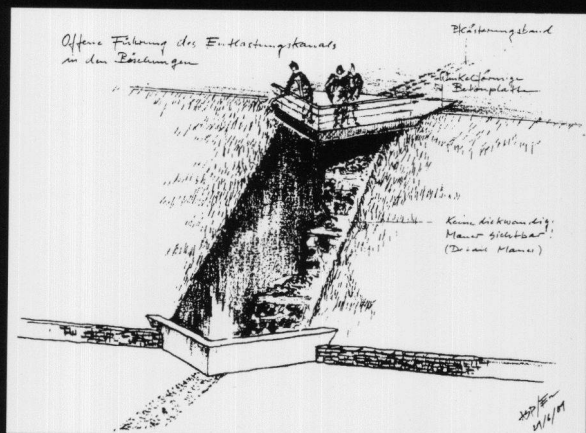 Offene Führung des Entlastungskanals
in den Böschungen
Pflästerungsband
winkelförmige
Betonplatte
Keine dickwandige
Mauer sichtbar!
(Detail Mauer)